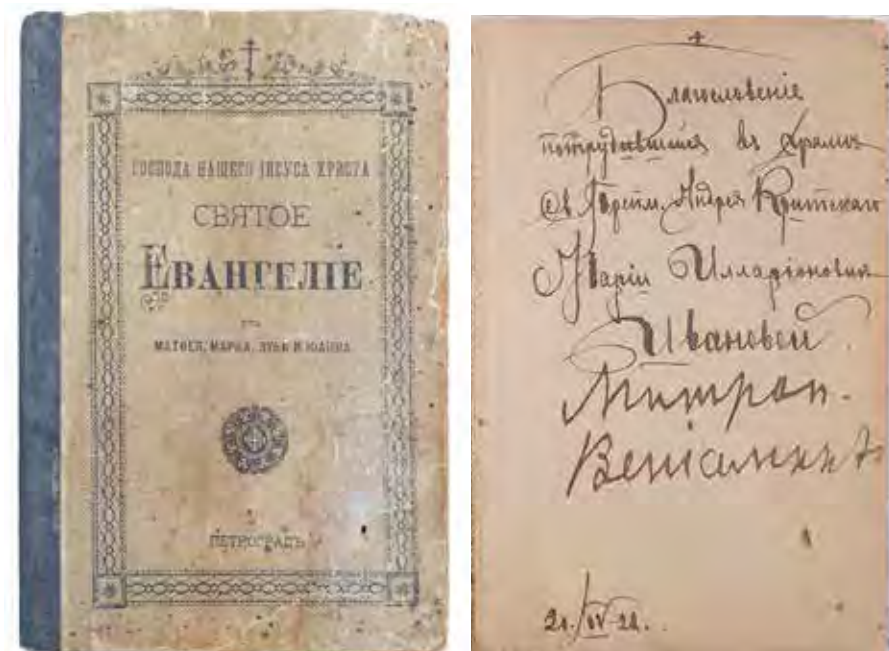 ГОСПОДА НАШЕГО ІИСУСА ХРИСТА
СВЯТОЕ
ЕВАНГЕЛІЕ
ОТЪ
МАТѲЕЯ, МАРКА, ЛУКИ И ІОАННА
ПЕТРОГРАДЪ
Благословеніе
потрудившейся въ храмѣ
Св. Андрея Критскаго
Маріи Илларіоновнѣ
Ивановой
Митроп.
Веніаминъ